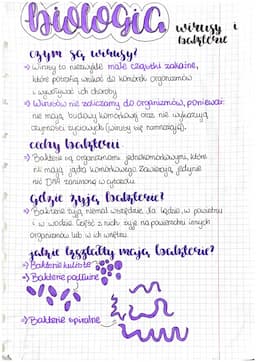 biologia
wirusy i
bakterie
czym są wirusy?
→ Wirusy to niezwykle małe cząstki zakaźne,
które potrafią wnikać do komórek organizmów
i wywoływać ich choroby
→ Wirusów nie zaliczamy do organizmów, ponieważ
nie mają budowy komórkowej oraz nie wykazują
czynności życiowych (wirusy się namnażają).
cechy bakterii
→ Bakterie są organizmami jednokomórkowymi, które
nie mają jądra komórkowego. Zawierają jedynie
nić DNA zanurzoną w cytozolu
gdzie żyją bakterie?
→ Bakterie żyją niemal wszędzie: na lądzie, w powietrzu
i w wodzie. Część z nich żyje na powierzchni innych
organizmów lub w ich wnętrzu.
jakie kształty mają bakterie?
→ Bakterie kuliste
→ Bakterie podłużne
→ Bakterie spiralne